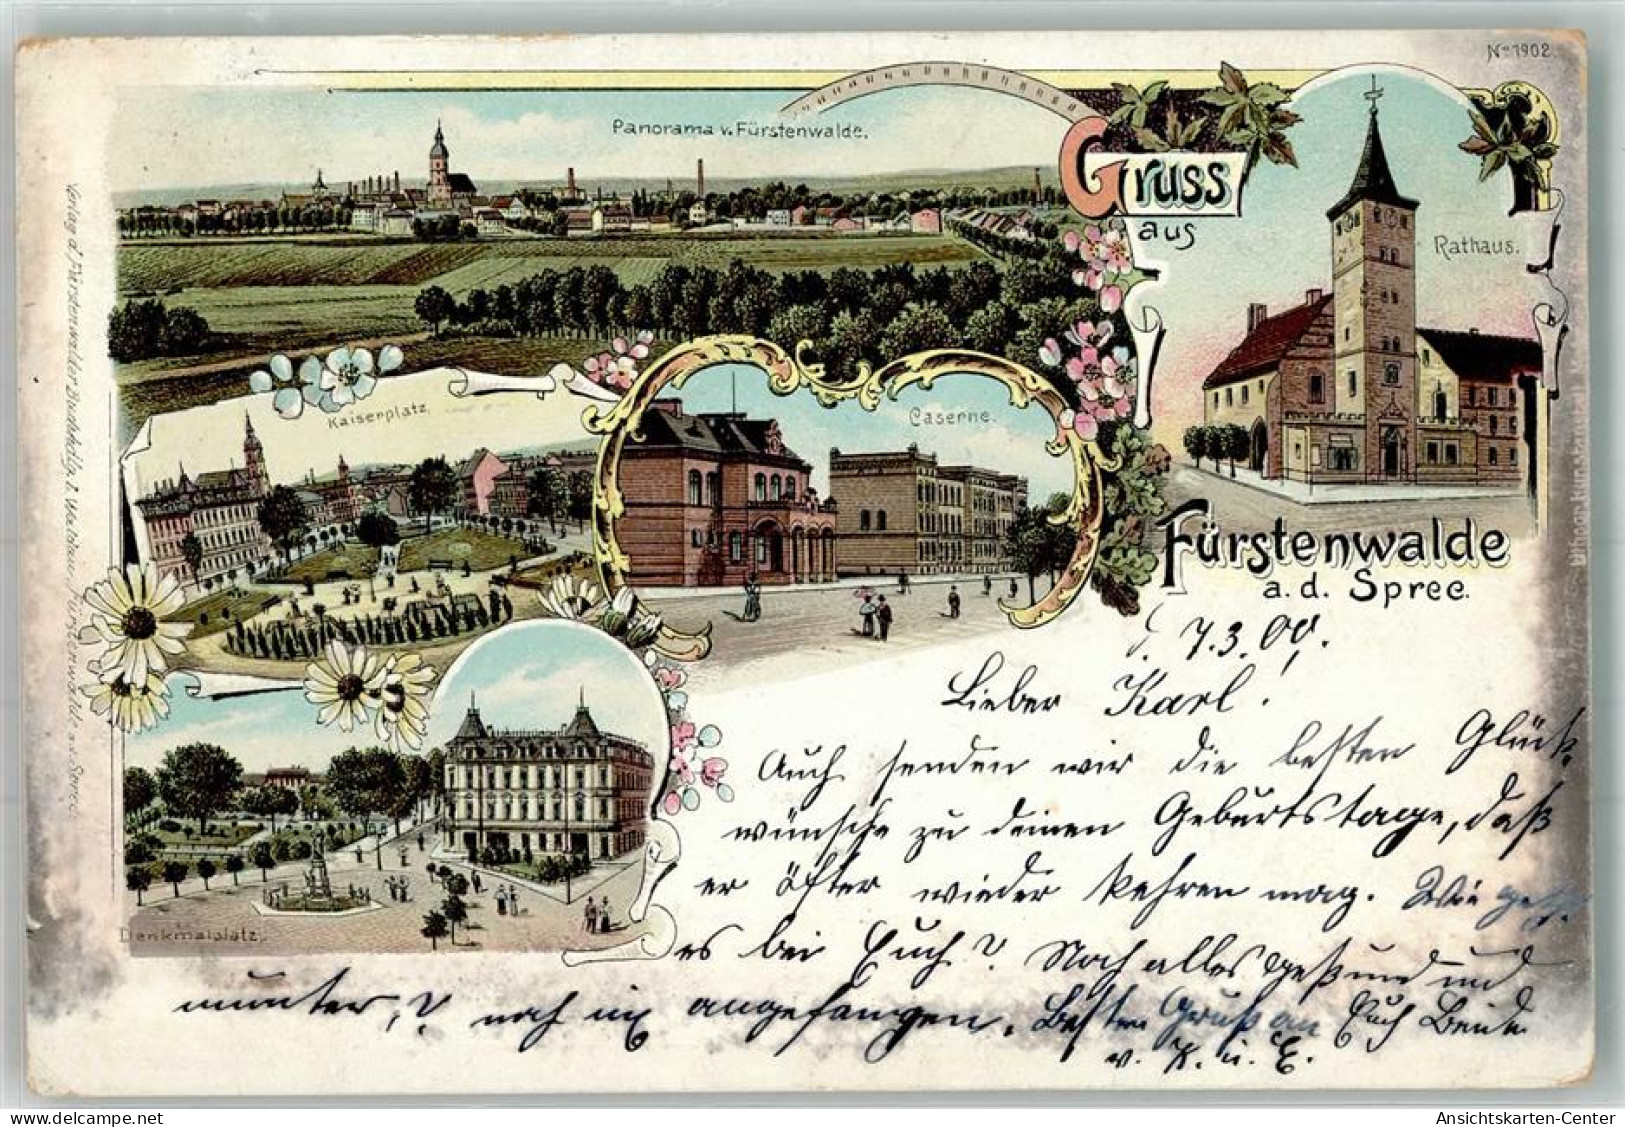 No 1902
Panorama v. Fürstenwalde.
Gruss
aus
Rathaus.
Kaiserplatz.
Caserne.
Fürstenwalde
a. d. Spree.
Denkmalplatz.
Verlag d. Fürstenwalder Buchhdlg. Fürstenwalde a. d. Spree
7.3.00.
Lieber Karl!
Auch senden wir die besten Glück-
wünsche zu deinem Geburtstage, daß
er öfter wieder kehren mag. Wie geht
es bei Euch? Noch alles gesund und
munter,? noch nix angefangen. Besten Gruß an Euch Beide
v. K. u. E.
delcampe.net
Ansichtskarten-Center